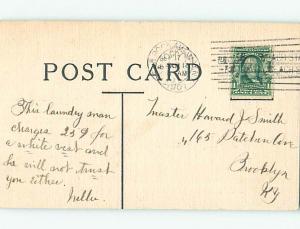 SEP 17
1907
POST CARD
This laundry man
charges 25¢ for
a white vest and
he will not trust
you either.
Nellie.
Master Howard J. Smith
465 Patchen Ave
Brooklyn
NY